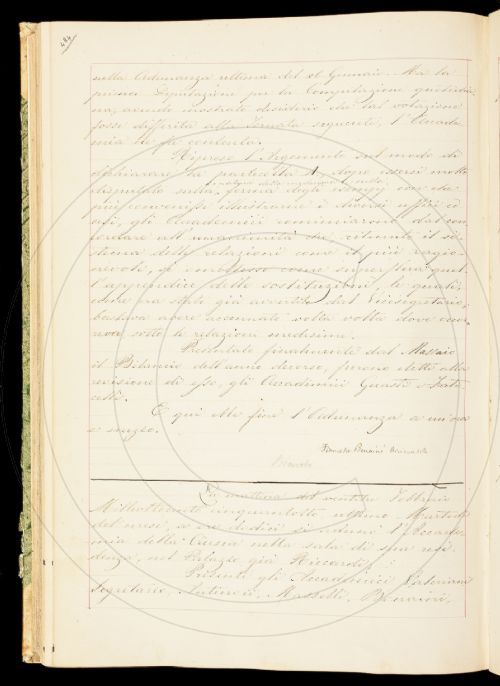 484
nella Adunanza ultima del di Gennaio. Ma la
prima Deputazione per la Compilazione quotidia-
na, avendo mostrato desiderio che tal votazione
fosse differita alla Tornata seguente, l'Accade-
mia ne fu contenta.
Ripreso l'Argomento sul modo di
dichiarare la particella A, dopo essersi molto
disputato sulla forma degli esempi con che
me' convenisse illustrarne i diversi uffici e
casi, gli Accademici cominciarono dal con-
cordare all'unanimità che, ritenuto il si-
stema delle relazioni come il più ragio-
nevole, si omettesse come superflua quel-
l'appendice delle sostituzioni, le quali,
come fu stato già avvertito dal Vicesegretario,
bastava avere accennate volta volta dove occor-
reva sotto le relazioni medesime.
Presentato finalmente dal Massaio
il Bilancio dell'anno decorso, furono eletti alla
revisione di esso, gli Accademici Guasti e Frati-
celli.
E qui ebbe fine l'Adunanza a un'ora
e mezzo.
La mattina del ventitre Febbraio
Milleottocento cinquantotto ultimo Martedì
del mese, a ore dodici si adunò l'Accade-
mia della Crusca nella sala di sua resi-
denza, nel Palazzo già Riccardi.
Presenti gli Accademici
Segretario, Antinori, Masselli, Bencini,